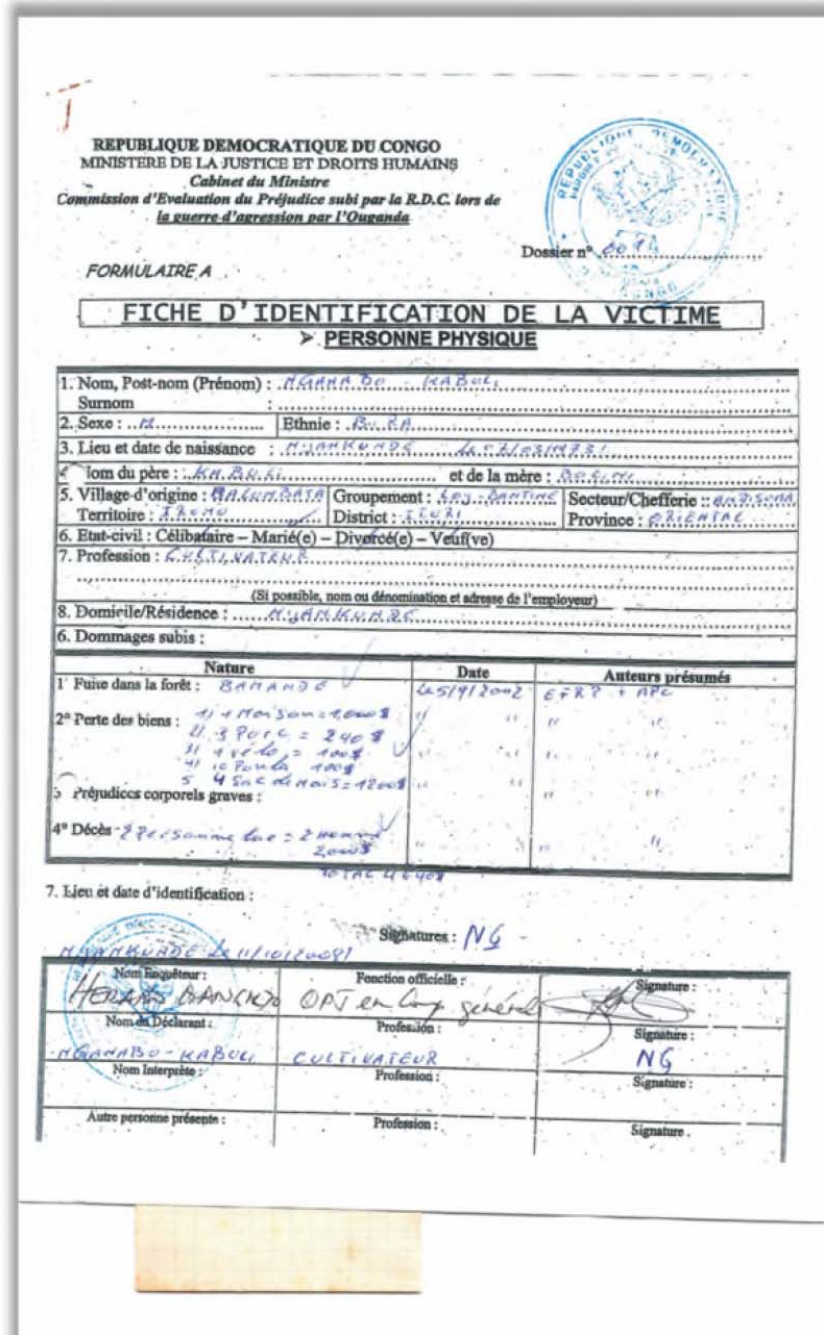 REPUBLIQUE DEMOCRATIQUE DU CONGO
MINISTERE DE LA JUSTICE ET DROITS HUMAINS
Cabinet du Ministre
Commission d'Evaluation du Préjudice subi par la R.D.C. lors de
la guerre d'agression par l'Ouganda
REPUBLIQUE DEMOCRATIQUE
Dossier n°
FORMULAIRE A
FICHE D'IDENTIFICATION DE LA VICTIME
➤ PERSONNE PHYSIQUE
1. Nom, Post-nom (Prénom) : NGANABO - KABULI
Surnom :
2. Sexe : M Ethnie : BIRA
3. Lieu et date de naissance : NYANKUNDE
Nom du père : KABULI et de la mère :
5. Village d'origine : Groupement : Secteur/Chefferie : ANDISOMA
Territoire : IRUMU District : ITURI Province : ORIENTAL
6. Etat-civil : Célibataire – Marié(e) – Divorcé(e) – Veuf(ve)
7. Profession : CULTIVATEUR
(Si possible, nom ou dénomination et adresse de l'employeur)
8. Domicile/Résidence : NYANKUNDE
6. Dommages subis :
Nature Date Auteurs présumés
1° Fuite dans la forêt : BAMANDE Le 5/9/2002 + APC
2° Perte des biens : 1) 1 Maison = 1000$ " " "
2) 3 Porc = 240$ " " "
3) 1 vélo = 100$ " " "
4) 10 Poule 100$
5 4 Sac de Mais = 1200$ " " "
Préjudices corporels graves : "
4° Décès 2 Personne tue = 2 Homme " " "
2000$
TOTAL 4640$
7. Lieu et date d'identification :
Signatures : NG
NYANKUNDE Le 11/10/2008
Nom Enquêteur : Fonction officielle : Signature :
OPJ en Comp générale
Nom du Déclarant : Profession : Signature :
NGANABO - KABULI CULTIVATEUR NG
Nom Interprète : Profession : Signature :
Autre personne présente : Profession : Signature .